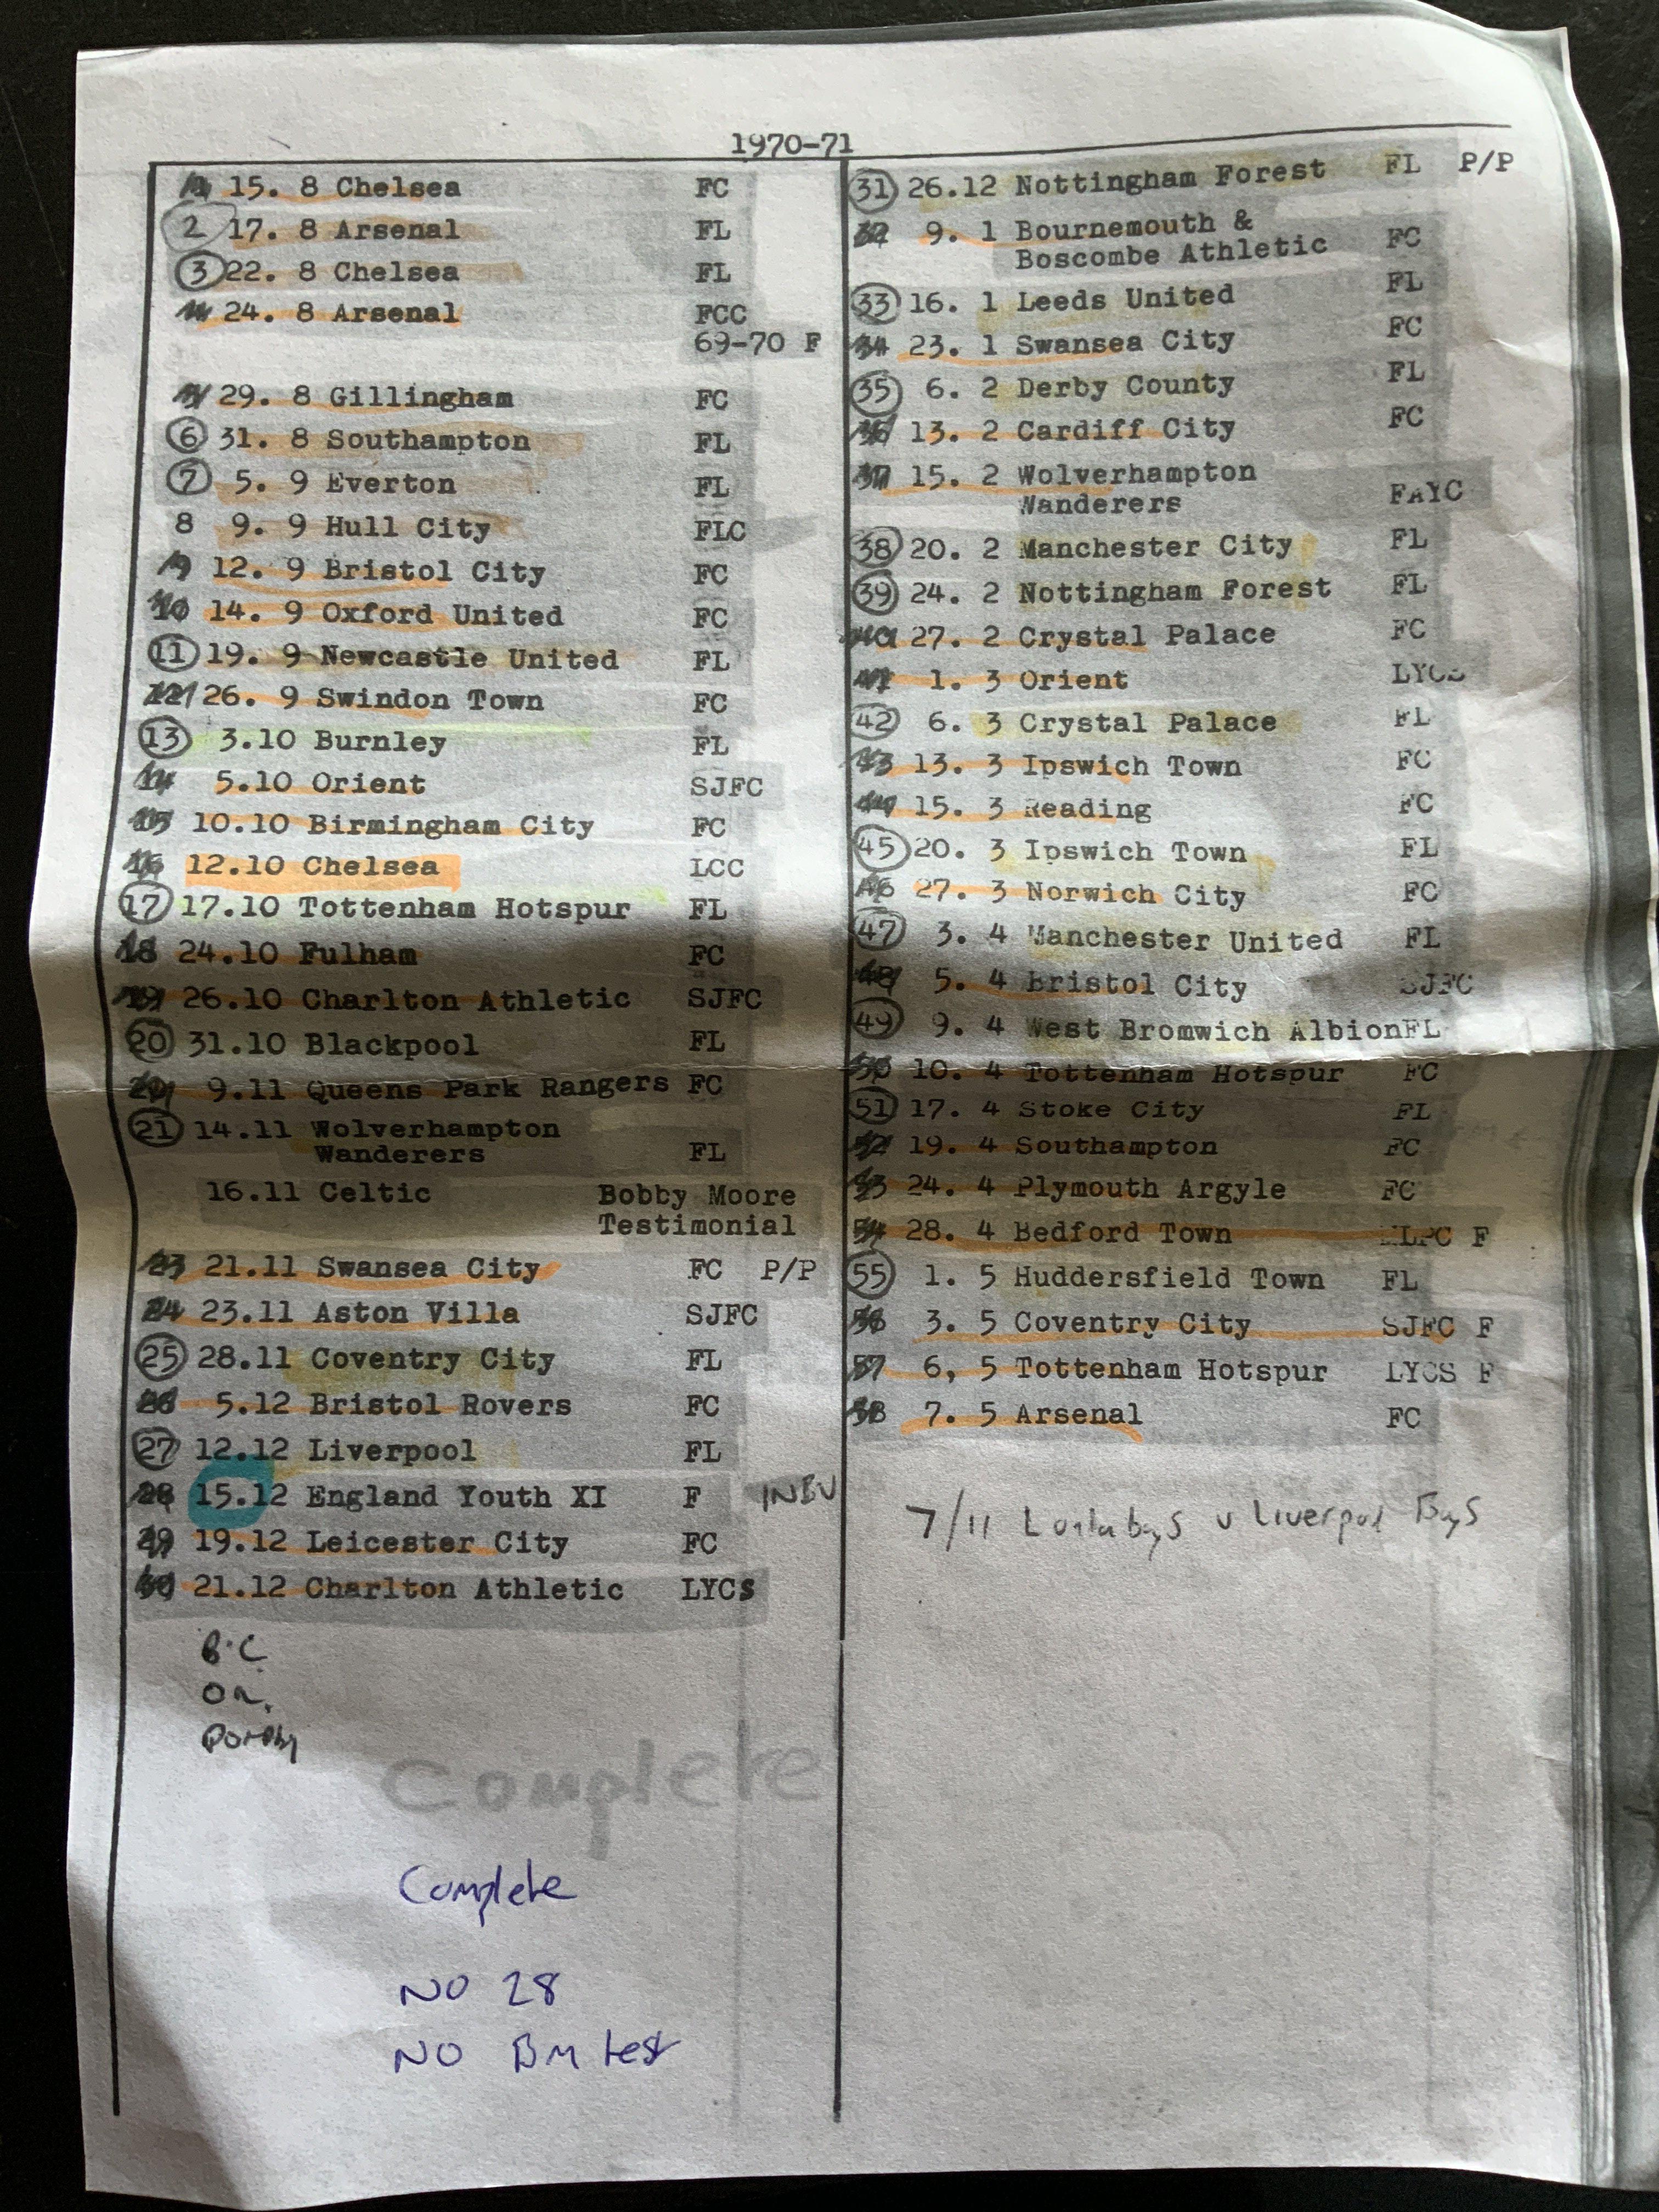 1970-71
1 15. 8 Chelsea FC
2 17. 8 Arsenal FL
3 22. 8 Chelsea FL
24. 8 Arsenal FCC
69-70 F
29. 8 Gillingham FC
6 31. 8 Southampton FL
7 5. 9 Everton FL
8 9. 9 Hull City FLC
9 12. 9 Bristol City FC
10 14. 9 Oxford United FC
11 19. 9 Newcastle United FL
12 26. 9 Swindon Town FC
13 3.10 Burnley FL
14 5.10 Orient SJFC
15 10.10 Birmingham City FC
16 12.10 Chelsea LCC
17 17.10 Tottenham Hotspur FL
18 24.10 Fulham FC
19 26.10 Charlton Athletic SJFC
20 31.10 Blackpool FL
9.11 Queens Park Rangers FC
21 14.11 Wolverhampton
Wanderers FL
16.11 Celtic Bobby Moore
Testimonial
23 21.11 Swansea City FC P/P
24 23.11 Aston Villa SJFC
25 28.11 Coventry City FL
26 5.12 Bristol Rovers FC
27 12.12 Liverpool FL
28 15.12 England Youth XI F
29 19.12 Leicester City FC
30 21.12 Charlton Athletic LYCS
B.C
Complete
Complete
NO 28
NO BM test
31 26.12 Nottingham Forest FL P/P
32 9. 1 Bournemouth &
Boscombe Athletic FC
33 16. 1 Leeds United FL
34 23. 1 Swansea City FC
35 6. 2 Derby County FL
36 13. 2 Cardiff City FC
37 15. 2 Wolverhampton
Wanderers FAYC
38 20. 2 Manchester City FL
39 24. 2 Nottingham Forest FL
40 27. 2 Crystal Palace FC
41 1. 3 Orient LYCS
42 6. 3 Crystal Palace FL
43 13. 3 Ipswich Town FC
44 15. 3 Reading FC
45 20. 3 Ipswich Town FL
46 27. 3 Norwich City FC
47 3. 4 Manchester United FL
48 5. 4 Bristol City SJFC
49 9. 4 West Bromwich Albion FL
50 10. 4 Tottenham Hotspur FC
51 17. 4 Stoke City FL
52 19. 4 Southampton FC
53 24. 4 Plymouth Argyle FC
54 28. 4 Bedford Town F
55 1. 5 Huddersfield Town FL
56 3. 5 Coventry City SJFC F
57 6, 5 Tottenham Hotspur LYCS F
58 7. 5 Arsenal FC
7/11 v Liverpool Boys